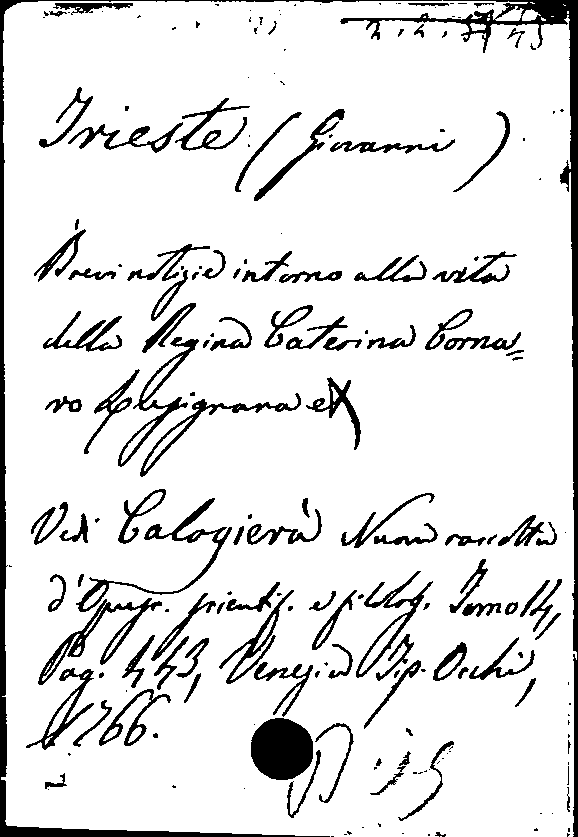 Trieste (Giovanni)
Brevi notizie intorno alla vita
della Regina Caterina Corna=
ro Lusignana
Vedi Calogierà Nuova raccolta
d'Opusc. scientif. e filolog. Tomo 14,
Pag. 443, Venezia Tip. Occhi,
1766.